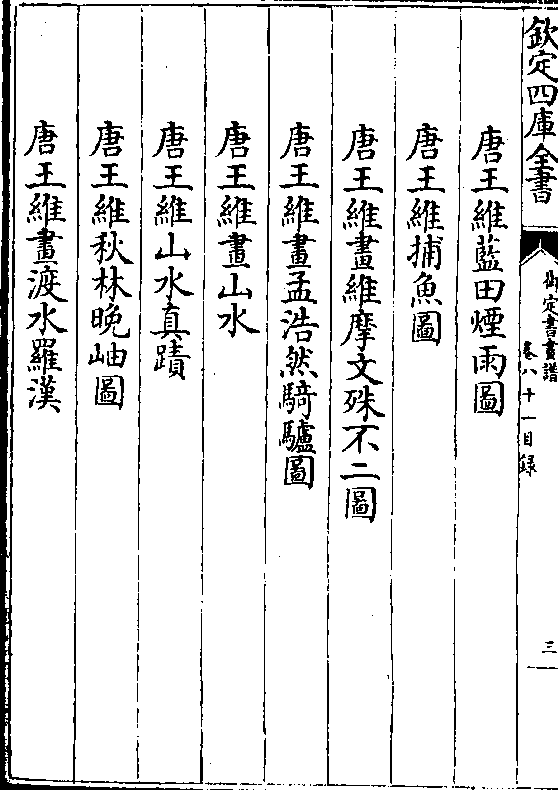 欽定四庫全書
御定書畫譜
卷八十一目録
三
唐王維藍田煙雨圖
唐王維捕魚圖
唐王維畫維摩文殊不二圖
唐王維畫孟浩然騎驢圖
唐王維畫山水
唐王維山水真蹟
唐王維秋林晚岫圖
唐王維畫渡水羅漢